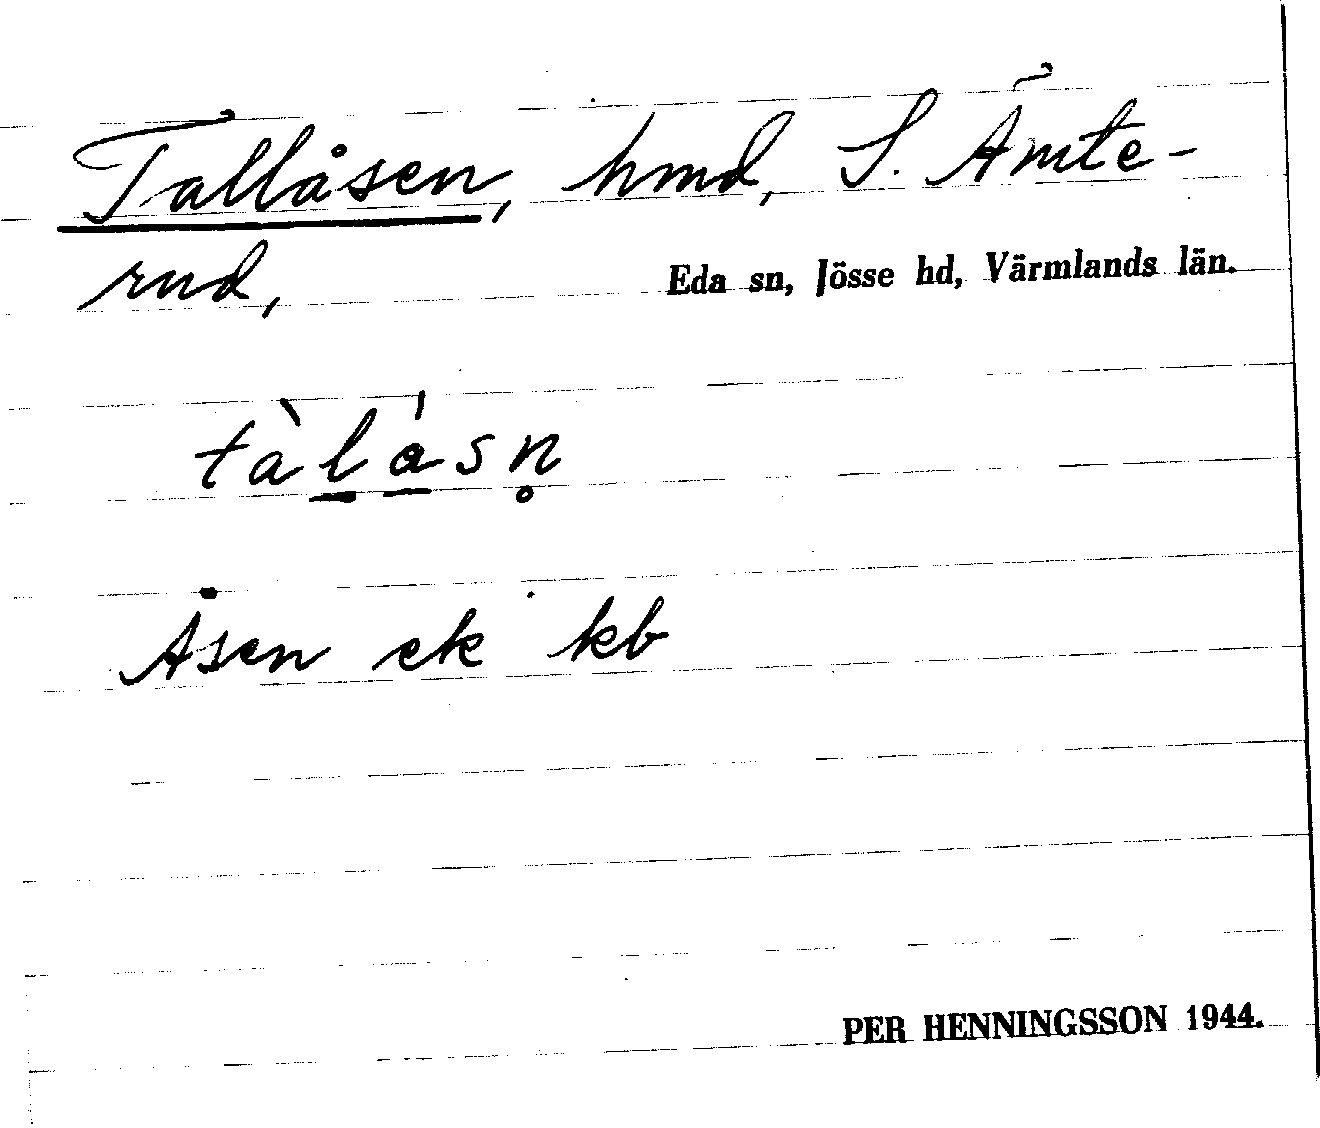 Tallåsen, hmd, S. Ämte-
rud,
Eda sn, Jösse hd, Värmlands län.
tàlåsn̥
Åsen ek kb
PER HENNINGSSON 1944.